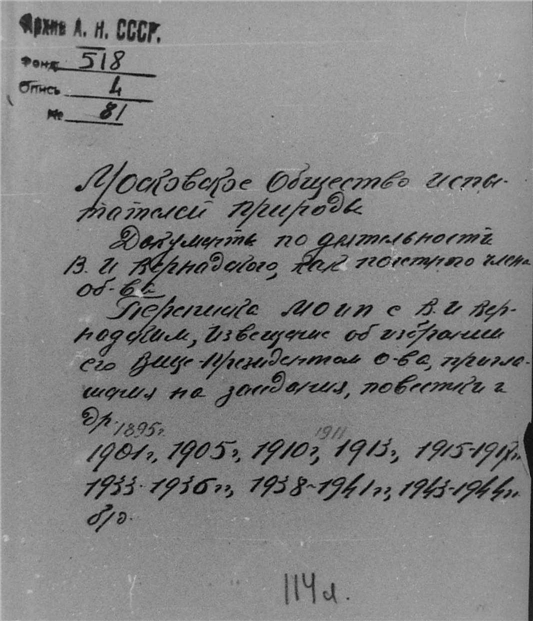 Архив А. Н. СССР.
Фонд 518
Опись 4
№ 81
Московское Общество испы-
тателей природы
Документы по деятельности
В. И Вернадского, как почетного члена
об-ва
Переписка МОИП с В. И Вер-
надским, извещение об избрании
его Вице-президентом о-ва, пригла-
шения на заседания, повестки и
др.
1895г. 1911
1901г, 1905г, 1910г, 1913г, 1915-1917гг
1933-1936гг, 1938-1941гг, 1943-1944гг.
б/д.
114 л.